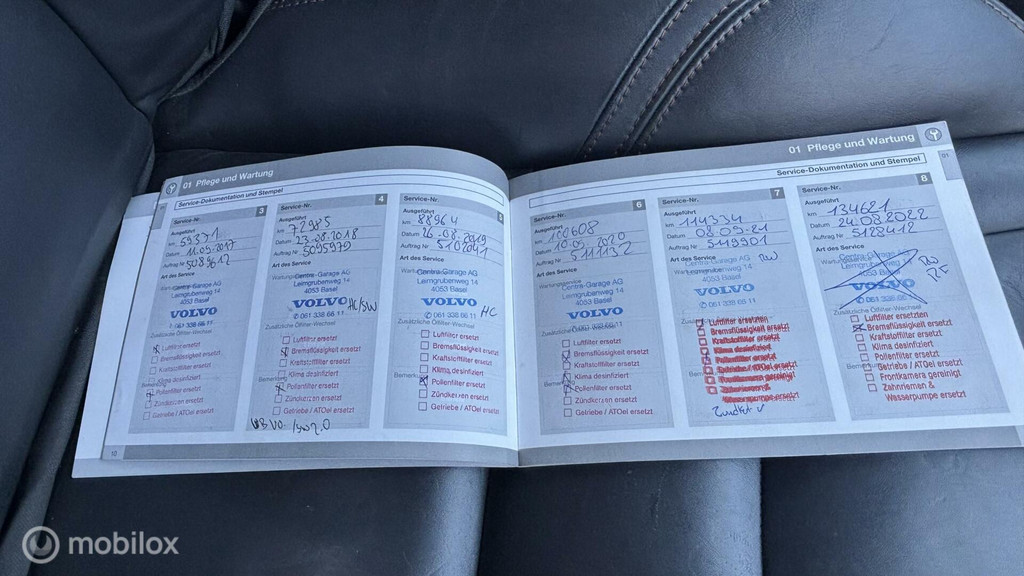 01 Pflege und Wartung
Service-Dokumentation und Stempel
Service-Nr. 3
Ausgeführt
km 59371
Datum 11.09.2017
Auftrag Nr 5089612
Art des Service
Centra-Garage AG
Leimgrubenweg 14
4053 Basel
VOLVO
✆ 061 338 66 11
Zusätzliche Ölfilter-Wechsel
Luftfilter ersetzt
Bremsflüssigkeit ersetzt
Kraftstoffilter ersetzt
Klima desinfiziert
Pollenfilter ersetzt
Zündkerzen ersetzt
Getriebe / ATOel ersetzt
10
Service-Nr. 4
Ausgeführt
km 72985
Datum 23.08.2018
Auftrag Nr 5095979
Art des Service
Centra-Garage AG
Leimgrubenweg 14
4053 Basel
VOLVO HC/SW
✆ 061 338 66 11
Zusätzliche Ölfilter-Wechsel
Luftfilter ersetzt
Bremsflüssigkeit ersetzt
Kraftstoffilter ersetzt
Klima desinfiziert
Pollenfilter ersetzt
Zündkerzen ersetzt
Getriebe / ATOel ersetzt
Service-Nr. 5
Ausgeführt
km 88964
Datum 26.08.2019
Auftrag Nr
Art des Service
Centra-Garage AG
Leimgrubenweg 14
4053 Basel
VOLVO
✆ 061 338 66 11 HC
Luftfilter ersetzt
Bremsflüssigkeit ersetzt
Kraftstoffilter ersetzt
Klima desinfiziert
Bemerkung
Pollenfilter ersetzt
Zündkerzen ersetzt
Getriebe / ATOel ersetzt
01 Pflege und Wartung
01
Service-Dokumentation und Stempel
Service-Nr. 6
Ausgeführt
km 100608
Datum 2020
Auftrag Nr 5111132
Art des Service
Centra-Garage AG
Leimgrubenweg 14
4053 Basel
VOLVO
Zusätzliche Ölfilter-Wechsel
Luftfilter ersetzt
Bremsflüssigkeit ersetzt
Kraftstoffilter ersetzt
Klima desinfiziert
Pollenfilter ersetzt
Zündkerzen ersetzt
Getriebe / ATOel ersetzt
Service-Nr. 7
Ausgeführt
km 114334
Datum 08.09.21
Auftrag Nr 5119901
Art des Service RW
Centra-Garage AG
Leimgrubenweg 14
4053 Basel
VOLVO
✆ 061 338 66 11
Luftfilter ersetzten
Bremsflüssigkeit ersetzt
Kraftstoffilter ersetzt
Klima desinfiziert
Pollenfilter ersetzt
Getriebe / ATOel ersetzt
Frontkamera gereinigt
Zahnriemen &
Wasserpumpe ersetzt
Service-Nr. 8
Ausgeführt
km 134621
Datum 24.08.2022
Auftrag Nr 5128412
Art des Service
Centra-Garage AG
Leimgrubenweg 14
4053 Basel
VOLVO
✆ 061 338 66
Luftfilter ersetzten
Bremsflüssigkeit ersetzt
Kraftstoffilter ersetzt
Klima desinfiziert
Pollenfilter ersetzt
Getriebe / ATOel ersetzt
Frontkamera gereinigt
Zahnriemen &
Wasserpumpe ersetzt
mobilox